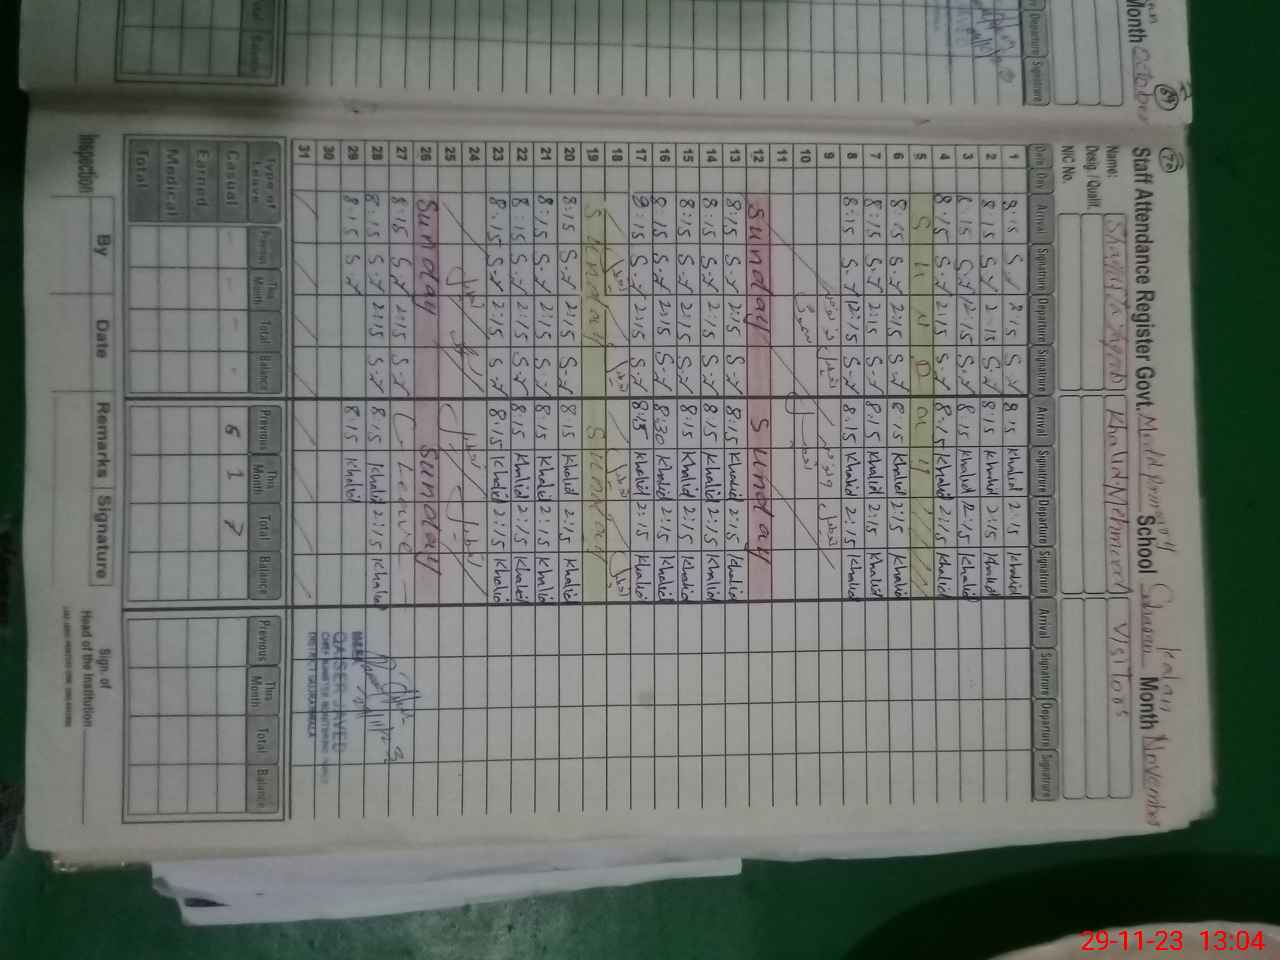 Month October
Departure Signature
69
70
Staff Attendance Register Govt. School Sharan Kalan Month November
Name: Khalid Mehmood Visitors
Desig./Qualif.
NIC No.
Date Day Arrival Signature Departure Signature Arrival Signature Departure Signature Arrival Signature Departure Signature
1 8:15 S.Y 2:15 S.Y 8:15 Khalid 2:15 Khalid
2 8:15 S.Y 2:15 S.Y 8:15 Khalid 2:15 Khalid
3 8:15 S.Y 12:15 S.Y 8:15 Khalid 12:15 Khalid
4 8:15 S.Y 2:15 S.Y 8:15 Khalid 2:15 Khalid
5 S u n D a y
6 8:15 S.Y 2:15 S.Y 8:15 Khalid 2:15 Khalid
7 8:15 S.Y 2:15 S.Y 8:15 Khalid 2:15 Khalid
8 8:15 S.Y 12:15 S.Y 8:15 Khalid 2:15 Khalid
9
10
11
12 Sunday Sunday
13 8:15 S.Y 2:15 S.Y 8:15 Khalid 2:15 Khalid
14 8:15 S.Y 2:15 S.Y 8:15 Khalid 2:15 Khalid
15 8:15 S.Y 2:15 S.Y 8:15 Khalid 2:15 Khalid
16 8:15 S.Y 2:15 S.Y 8:30 Khalid 2:15 Khalid
17 8:15 S.Y 2:15 S.Y 8:15 Khalid 2:15 Khalid
18
19 Sunday Sunday
20 8:15 S.Y 2:15 S.Y 8:15 Khalid 2:15 Khalid
21 8:15 S.Y 2:15 S.Y 8:15 Khalid 2:15 Khalid
22 8:15 S.Y 2:15 S.Y 8:15 Khalid 2:15 Khalid
23 8:15 S.Y 2:15 S.Y 8:15 Khalid 2:15 Khalid
24
25
26 Sunday Sunday
27 8:15 S.Y 2:15 S.Y C-Leave
28 8:15 S.Y 2:15 S.Y 8:15 Khalid 2:15 Khalid
29 8:15 S.Y 8:15 Khalid
30
31
QAISER JAVED
Type of Leave Previous This Month Total Balance Previous This Month Total Balance Previous This Month Total Balance
Casual - - - 6 1 7
Earned
Medical
Total
Inspection By Date Remarks Signature
Sign. of
Head of the Institution
29-11-23 13:04